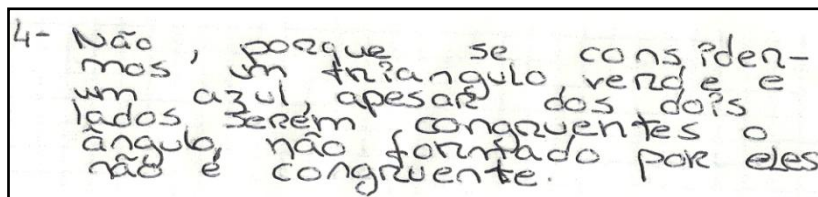 4- Não, porque se consider-
mos um triangulo verde e
um azul, apesar dos dois
lados serem congruentes o
ângulo, não formado por eles
não é congruente.